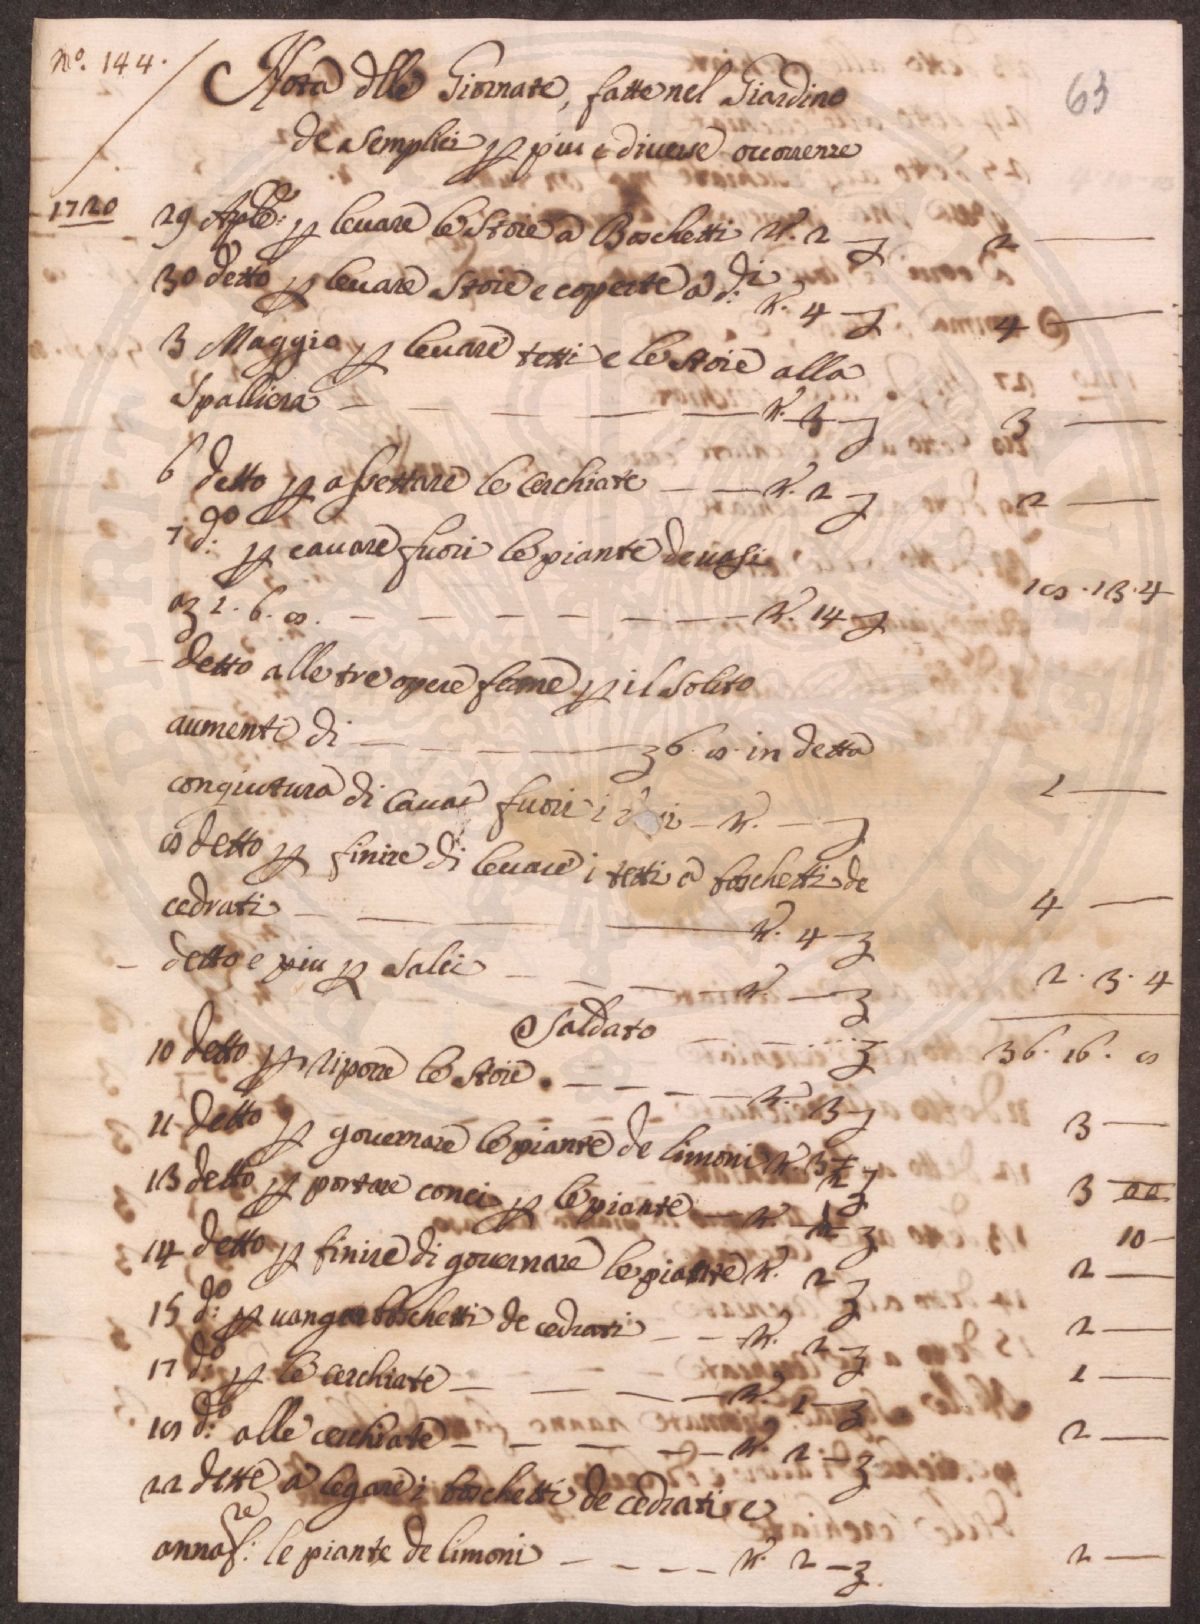 N.º 144.
63
Nota dlle Giornate, fatte nel Giardino
de Semplici p piu e diverse occorrenze
1720
29 Aple: p levare le Stoie a Boschetti N. 2 — 2 —
30 detto p levare Stoie e coperte a d.i N. 4 — 4 —
3 Maggio p levare tetti e le Stoie alla
Spalliera — — — — N. 3 — 3 —
6 detto p assettare le Cerchiate — — N. 2 — 2 —
7 d.o p cavare fuori le piante de vasi
a 1. 6. 8. — — — — N. 14 — 18. 13. 4
— detto alle tre opere ferme p il Solito
aumento di — — — — 6. 8 in detta
congiuntura di Cavar fuori i — N. — 1 —
8 detto p finire di levare i tetti a boschetti de
cedrati — — — N. 4 — 4 —
— detto e piu p Salci — — — N. — 2. 3. 4
Saldato — — — 36. 16. 8
10 detto p riporre le Stoie — — — N. 3 — 3 —
11 detto p governare le piante de limoni N. 3 — 3 —
13 detto p portare conci p le piante — N. ½ — 10 —
14 detto p finire di governare le piante N. 2 — 2 —
15 d.o p vangar boschetti de cedrati — — N. 2 — 2 —
17 d.o p le cerchiate — — — N. 1 — 1 —
18 d.o alle cerchiate — — — N. 2 — 2 —
22 dette a legare i boschetti de cedrati e
annaf.re le piante de limoni — — — N. 2 — 2 —